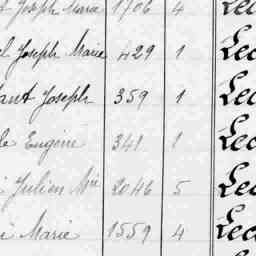 Joseph Marie 1706 4 Le
Joseph Marie 429 1 Lec
Joseph 359 1 Lec
Eugène 341 1 Lec
Julien Mie 2046 5 Lec
Marie 1559 4 Lec